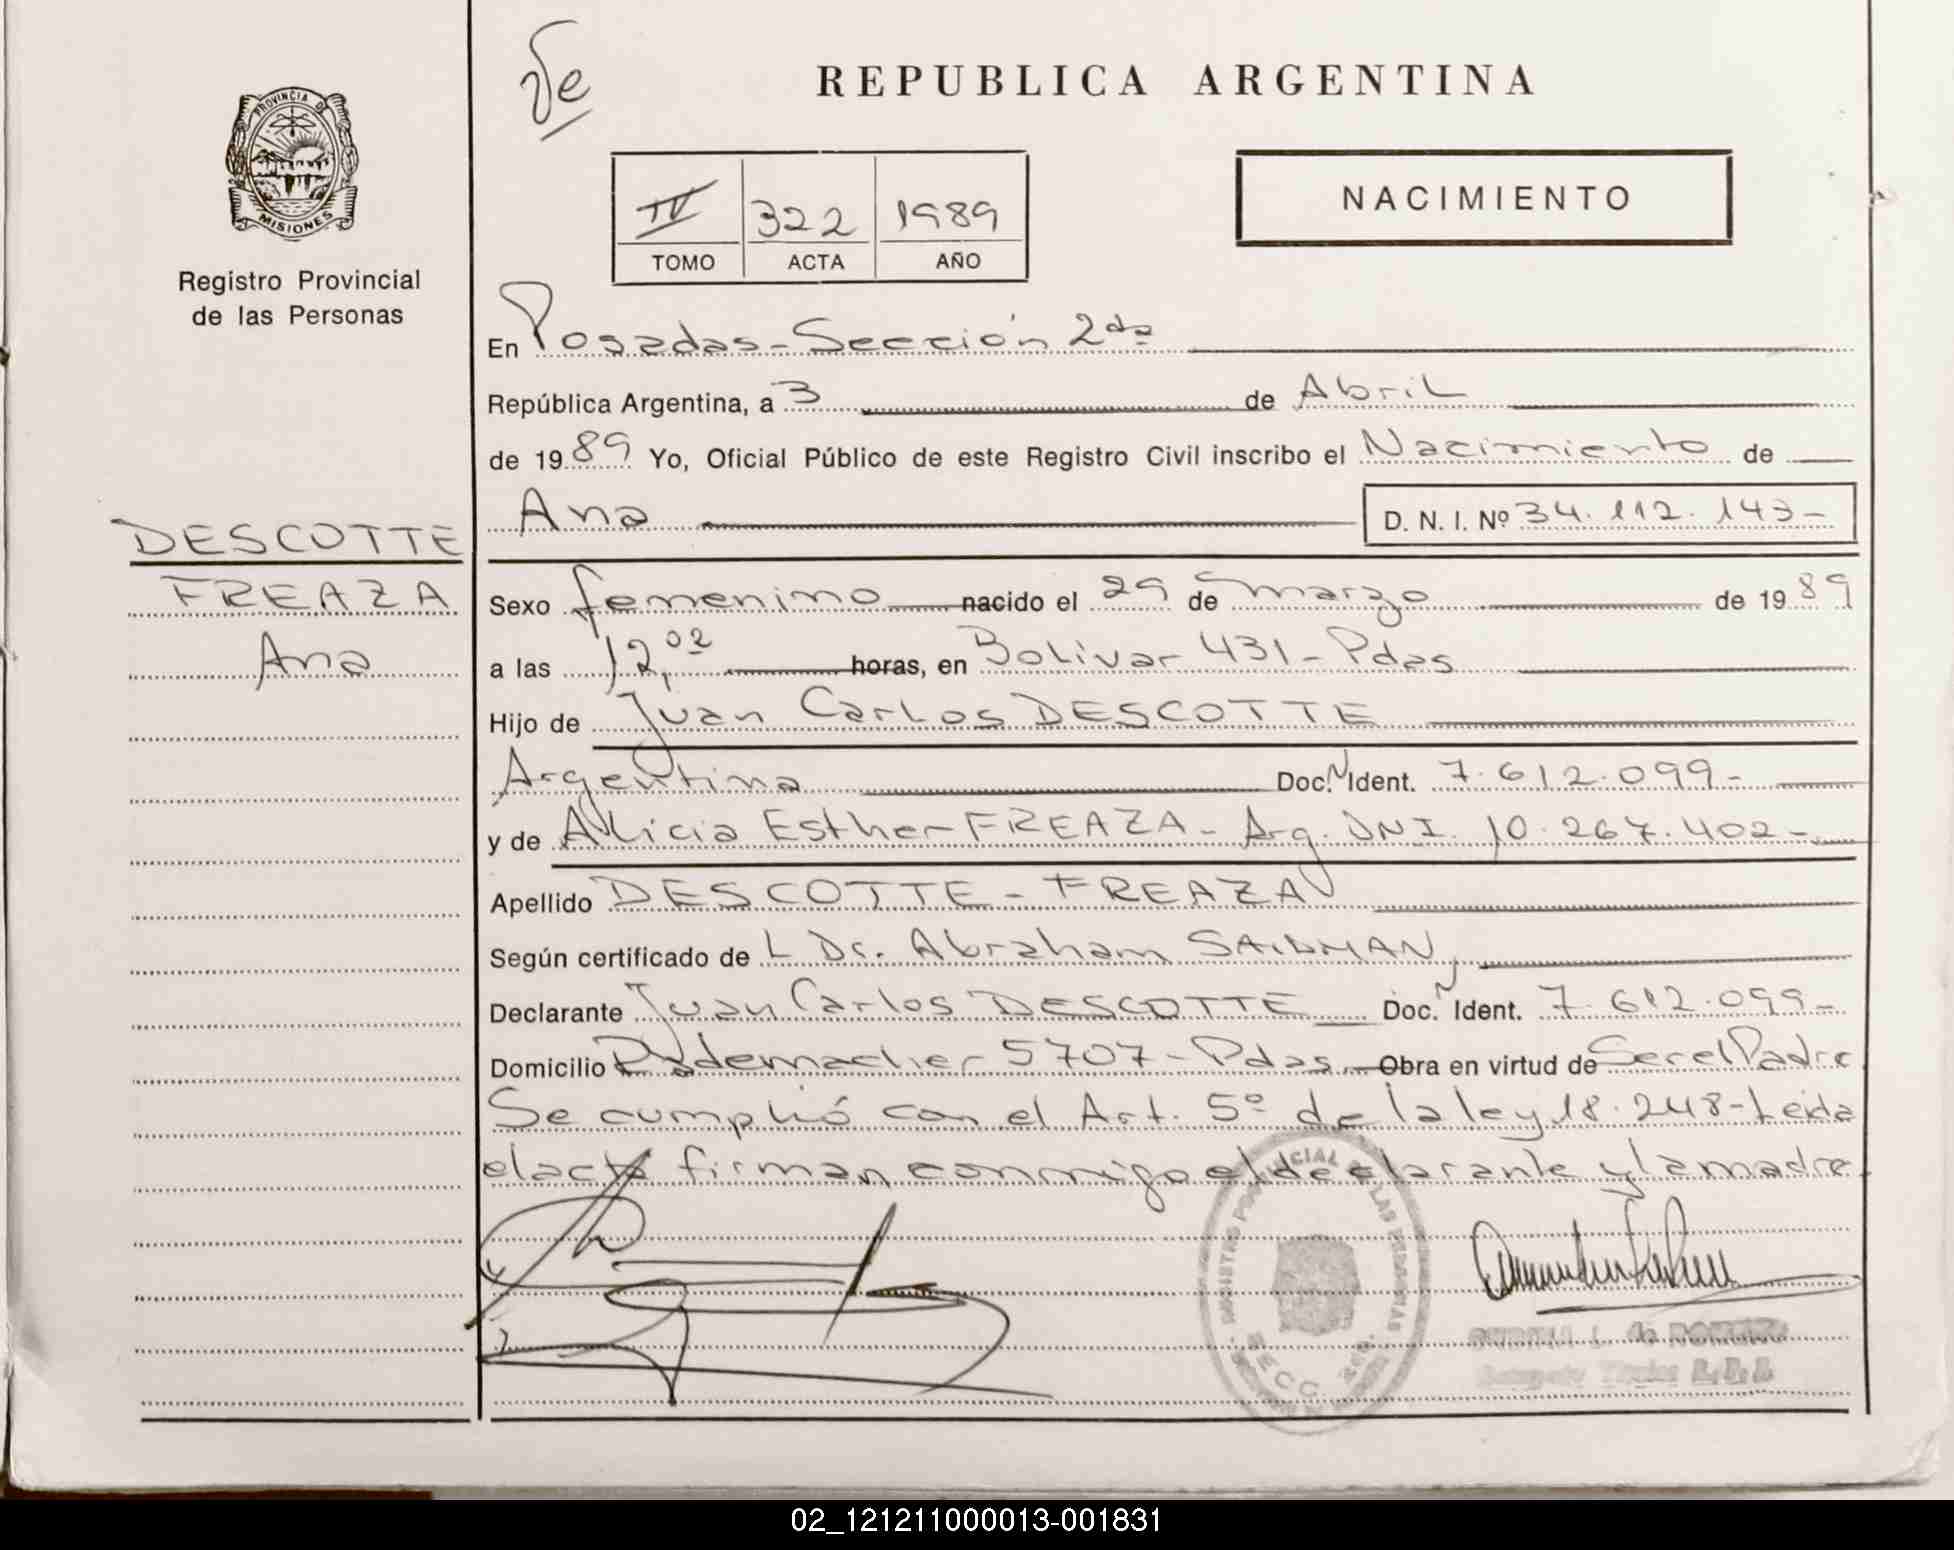 Ve
REPUBLICA ARGENTINA
PROVINCIA DE
MISIONES
IV 322 1989
TOMO ACTA AÑO
NACIMIENTO
Registro Provincial
de las Personas
En Posadas-Sección 2da
República Argentina, a 3 de Abril
de 1989 Yo, Oficial Público de este Registro Civil inscribo el Nacimiento de
Ana D. N. I. Nº 34.112.143-
DESCOTTE
FREAZA
Ana
Sexo femenino nacido el 29 de marzo de 1989
a las 12,02 horas, en Bolivar 431-Pdas
Hijo de Juan Carlos DESCOTTE
Argentina Doc. N Ident. 7.612.099-
y de Alicia Esther FREAZA- Arg. DNI. 10.267.402-
Apellido DESCOTTE - FREAZA
Según certificado de L Dr. Abraham SAIDMAN
Declarante Juan Carlos DESCOTTE Doc. N Ident. 7.612.099-
Domicilio Rademacher 5707-Pdas Obra en virtud de Ser el Padre
Se cumplió con el Art. 5º de la ley 18.248-Leida
el acta firman conmigo el declarante y la madre
SECC. 2da.
02_121211000013-001831